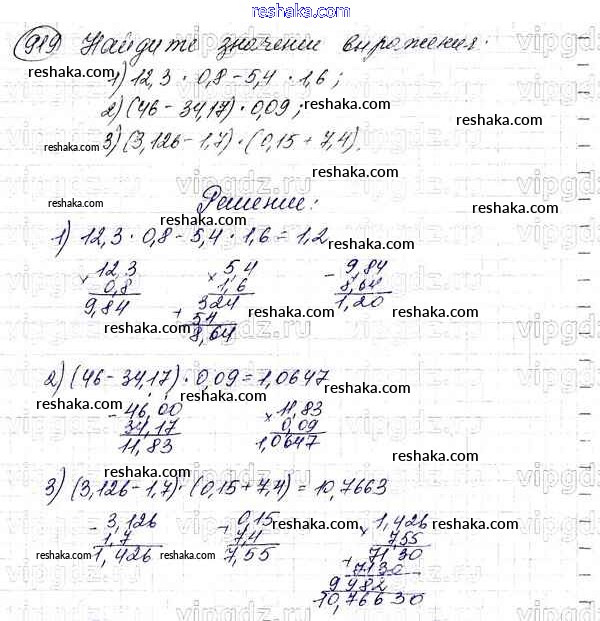 reshaka.com
919 Найдите значении выражения:
1) 12,3 · 0,8 - 5,4 · 1,6;
reshaka.com reshaka.com reshaka.com
2) (46 - 34,17) · 0,09;
3) (3,126 - 1,7) · (0,15 + 7,4).
reshaka.com reshaka.com
vipgdz.ru vipgdz.ru vipgdz
reshaka.com
Решение:
reshaka.com reshaka.com
1) 12,3 · 0,8 - 5,4 · 1,6 = 1,2
× 12,3 × 5,4 - 9,84
0,8 1,6 8,64
9,84 324 1,20
+ 54
8,64
reshaka.com reshaka.com reshaka.com
vipgdz.ru vipgdz.ru vipgdz
reshaka.com
2) (46 - 34,17) · 0,09 = 1,0647
reshaka.com reshaka.com
- 46,00 × 11,83
34,17 0,09
11,83 1,0647
reshaka.com reshaka.com reshaka.com
vipgdz.ru vipgdz.ru vipgdz
reshaka.com
3) (3,126 - 1,7) · (0,15 + 7,4) = 10,7663
reshaka.com
- 3,126 + 0,15 × 1,426
1,7 7,4 7,55
1,426 7,55 7130
+ 7130
9982
10,76630
reshaka.com reshaka.com reshaka.com
vipgdz.ru vipgdz.ru vipgdz
reshaka.com reshaka.com